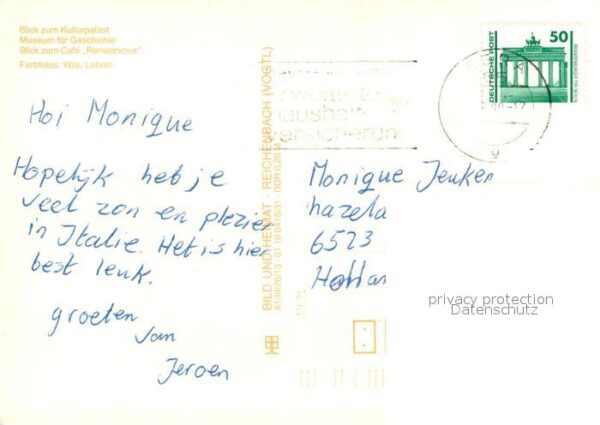 Blick zum Kulturpalast
Museum für Geschichte
Blick zum Café „Rendezvous"
Farbfotos: Wils, Lennin
Hoi Monique
Hopelijk heb je
veel zon en plezier
in Italie. Het is hier
best leuk.
groeten
van
Jeroen
BILD UND HEIMAT · REICHENBACH (VOGTL)
DDR 0,20 M
haushalt
versicherun
DEUTSCHE POST
50
Monique Jenken
hazela
6523
Hollan
privacy protection
Datenschutz